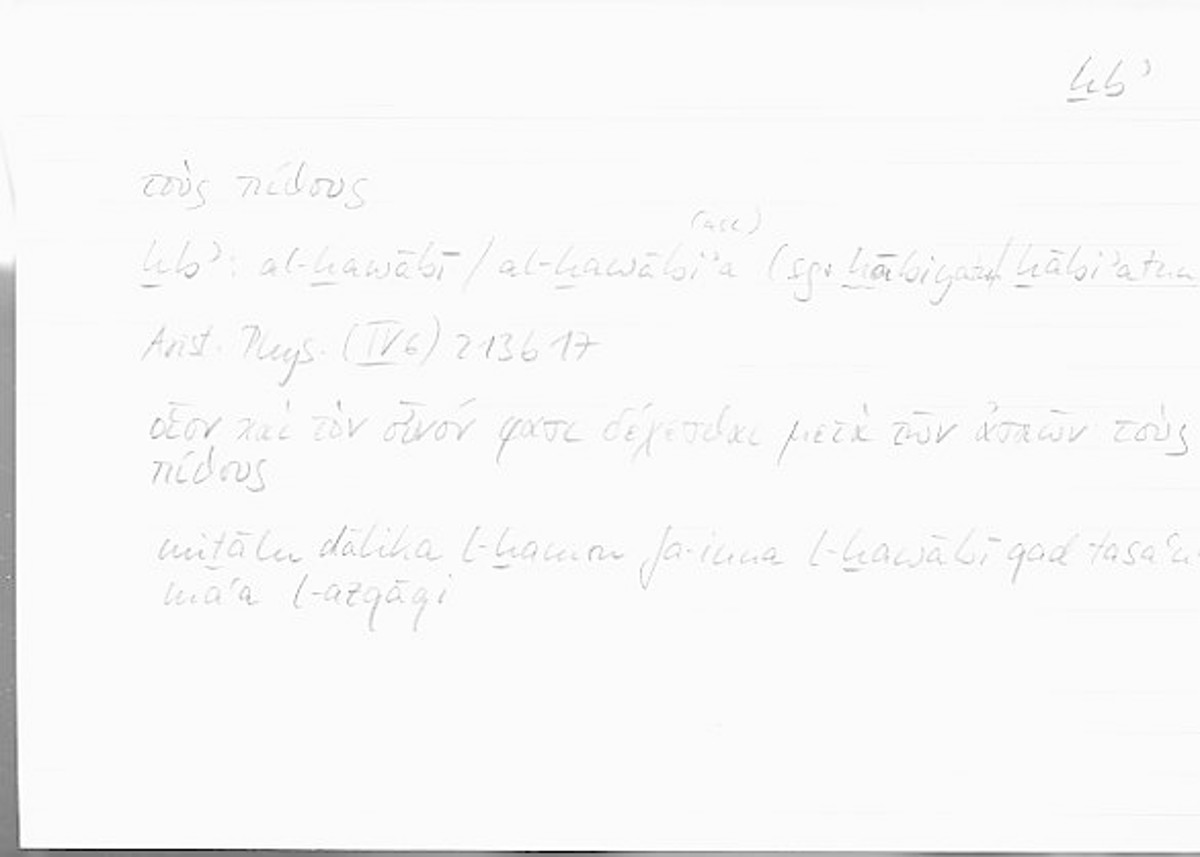 ḫbʾ
τοὺς πίθους
(acc)
ḫbʾ: al-ḫawābī / al-ḫawābiʾa (sg. ḫābiyatun / ḫābiʾatun
Arist. Phys. (IV 6) 213 b 17
οἷον καὶ τὸν οἶνόν φασι δέχεσθαι μετὰ τῶν ἀσκῶν τοὺς
πίθους
miṯālu ḏālika l-ḫamru fa-inna l-ḫawābī qad tasaʿu
maʿa l-azqāqi